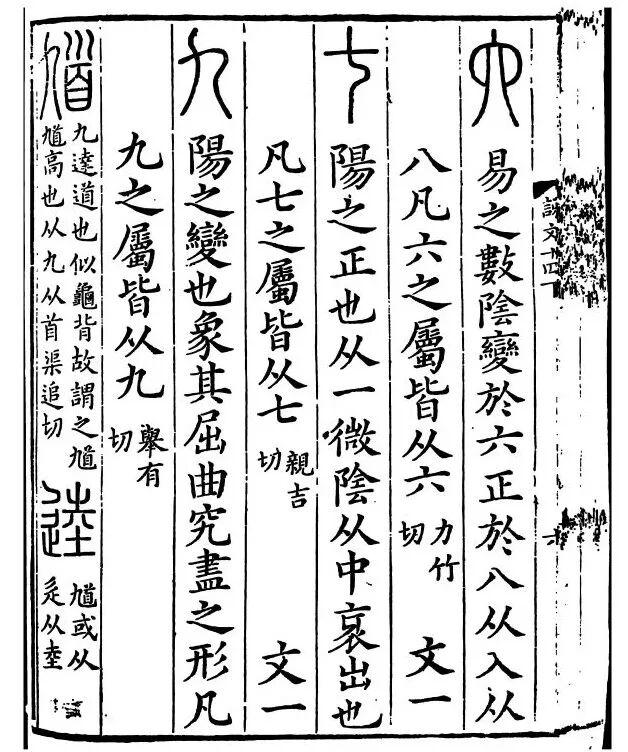 說文十四
六 易之數陰變於六正於八从入从
八凡六之屬皆从六 力竹切 文一
七 陽之正也从一微陰从中衺出也
凡七之屬皆从七 親吉切 文一
九 陽之變也象其屈曲究盡之形凡
九之屬皆从九 舉有切
馗 九達道也似龜背故謂之馗馗高也从九从首渠追切 逵 馗或从辵从坴